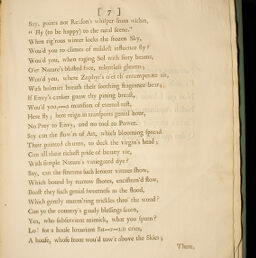 [ 7 ]
Say, points not Reason's whisper from within,
" Fly (to be happy) to the rural scene."
When rig'rous winter locks the frozen Sky,
Wou'd you to climes of mildest influence fly?
Wou'd you, when raging Sol with fiery beams,
O'er Nature's blasted face, relentless gleams;
Wou'd you, where Zephyr's o'er th' intemperate air,
With balmier breath their soothing fragrance bear;
If Envy's canker gnaw thy pining breast,
Wou'd you, a mansion of eternal rest,
Here fly; here reign in transports genial hour,
No Prey to Envy, and no tool to Power.
Say can the flow'rs of Art, which blooming spread
Their painted charms, to deck the virgin's head;
Can all their richest pride of beauty vie,
With simple Nature's variegated dye?
Say, can the streams such lenient virtues show,
Which bound by narrow shores, encistern'd flow,
Boast they such genial sweetness as the flood,
Which gently murm'ring trickles thro' the wood?
Can yo the country's gaudy blessings scorn,
Yes, who subservient mimick, what you spurn?
Lo! for a house luxurious cries,
A house, whose front wou'd tow'r above the Skies;
There,